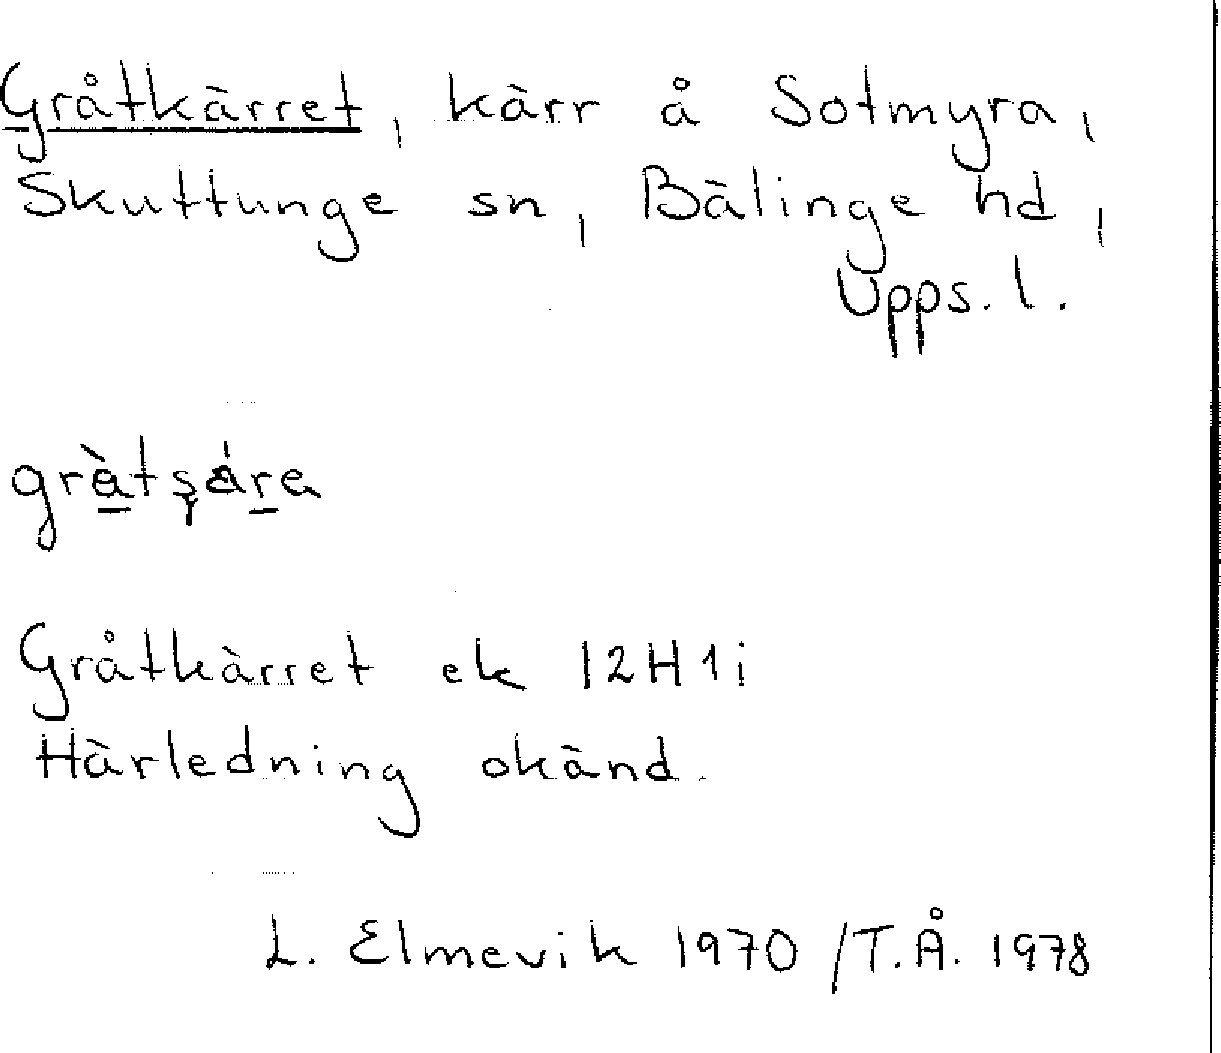 Gråtkärret, kärr å Sotmyra,
Skuttunge sn, Bälinge hd,
Upps. l.
Gråtkärret ek 12H1i
Härledning okänd.
L. Elmevik 1970 /T.Å. 1978